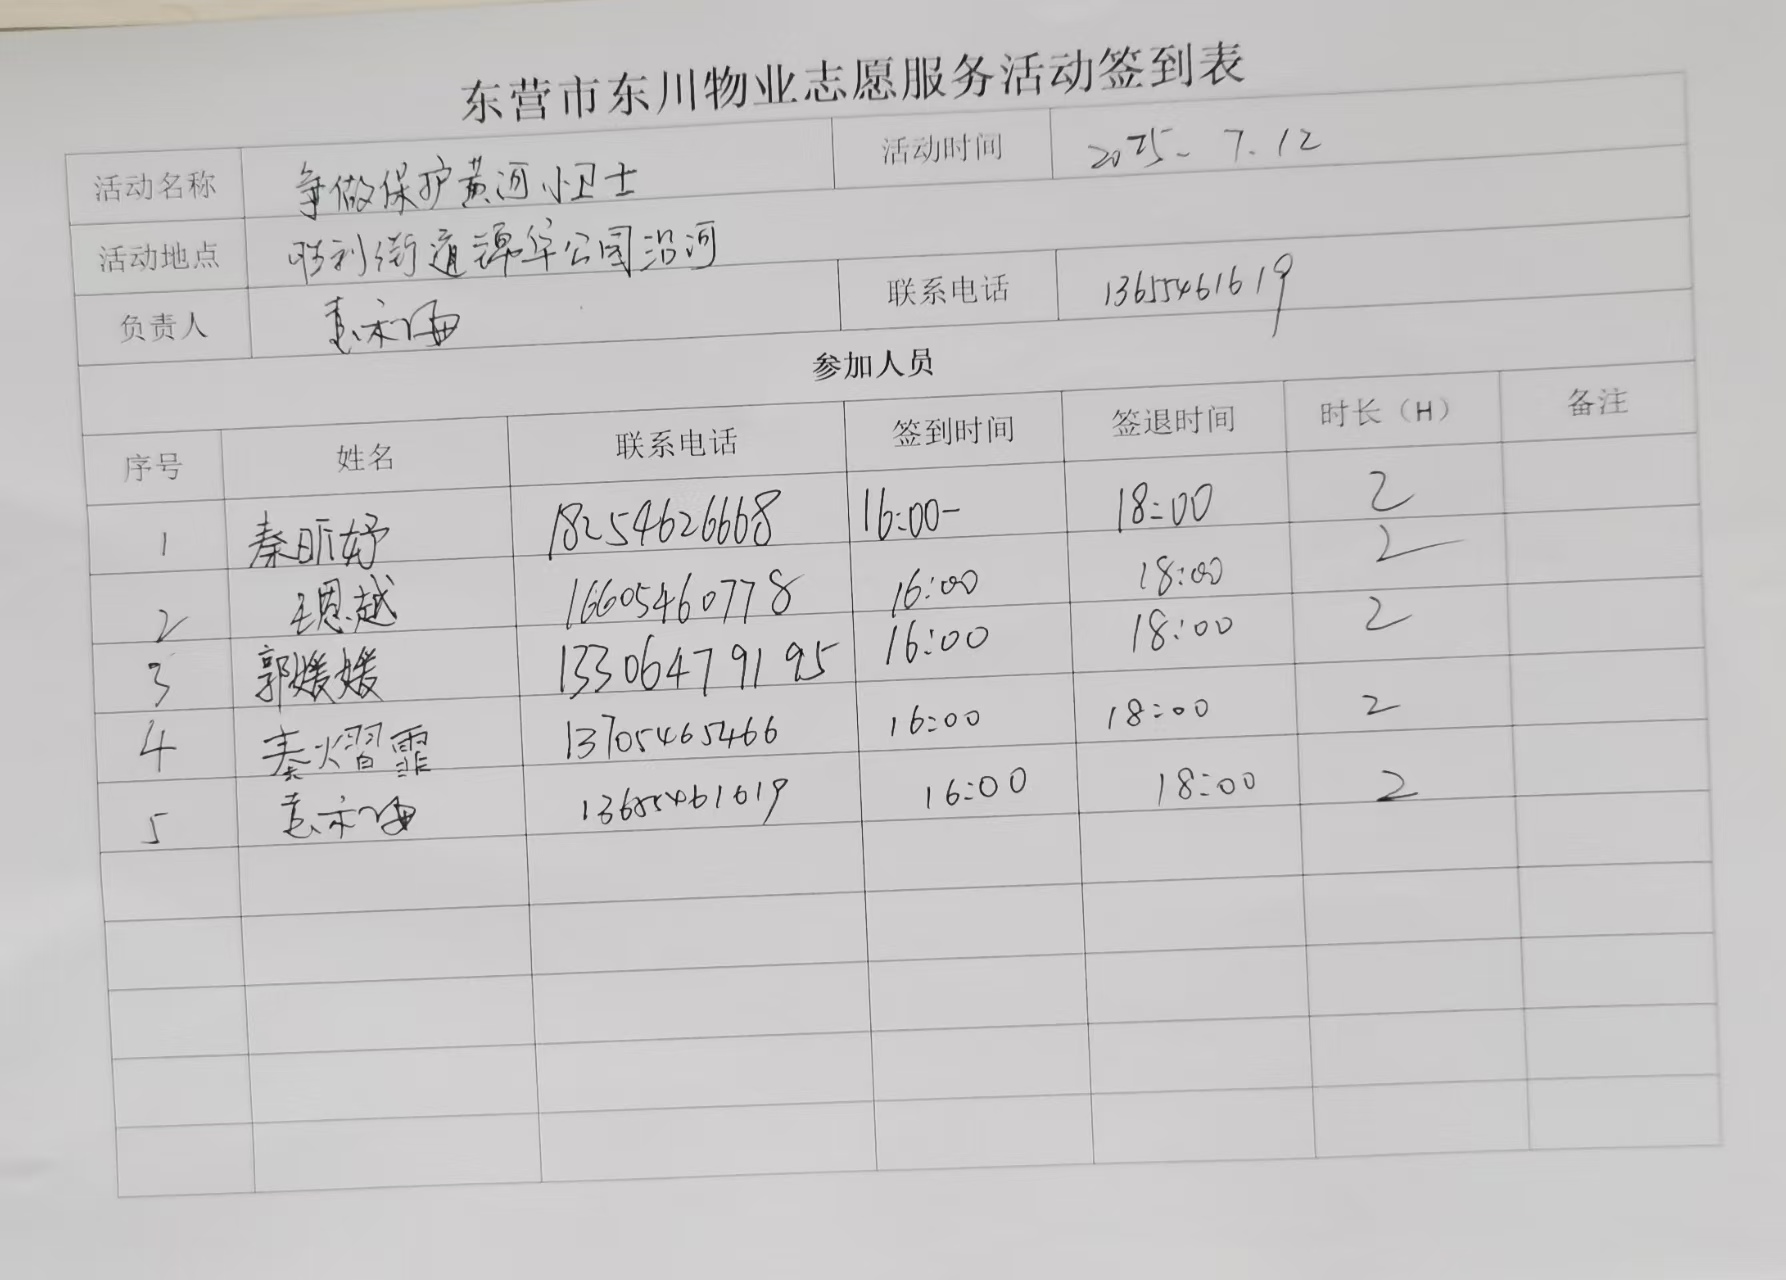 东营市东川物业志愿服务活动签到表
活动名称 争做保护黄河小卫士 活动时间 2025-7.12
活动地点 胜利街道锦华公园沿河
负责人 联系电话 13655461619
参加人员
序号 姓名 联系电话 签到时间 签退时间 时长（H） 备注
1 秦昕妤 18254626668 16:00- 18:00 2
2 王恩越 16605460778 16:00 18:00 2
3 郭媛媛 13306479195 16:00 18:00 2
4 秦熠霏 13705465466 16:00 18:00 2
5 13655461619 16:00 18:00 2